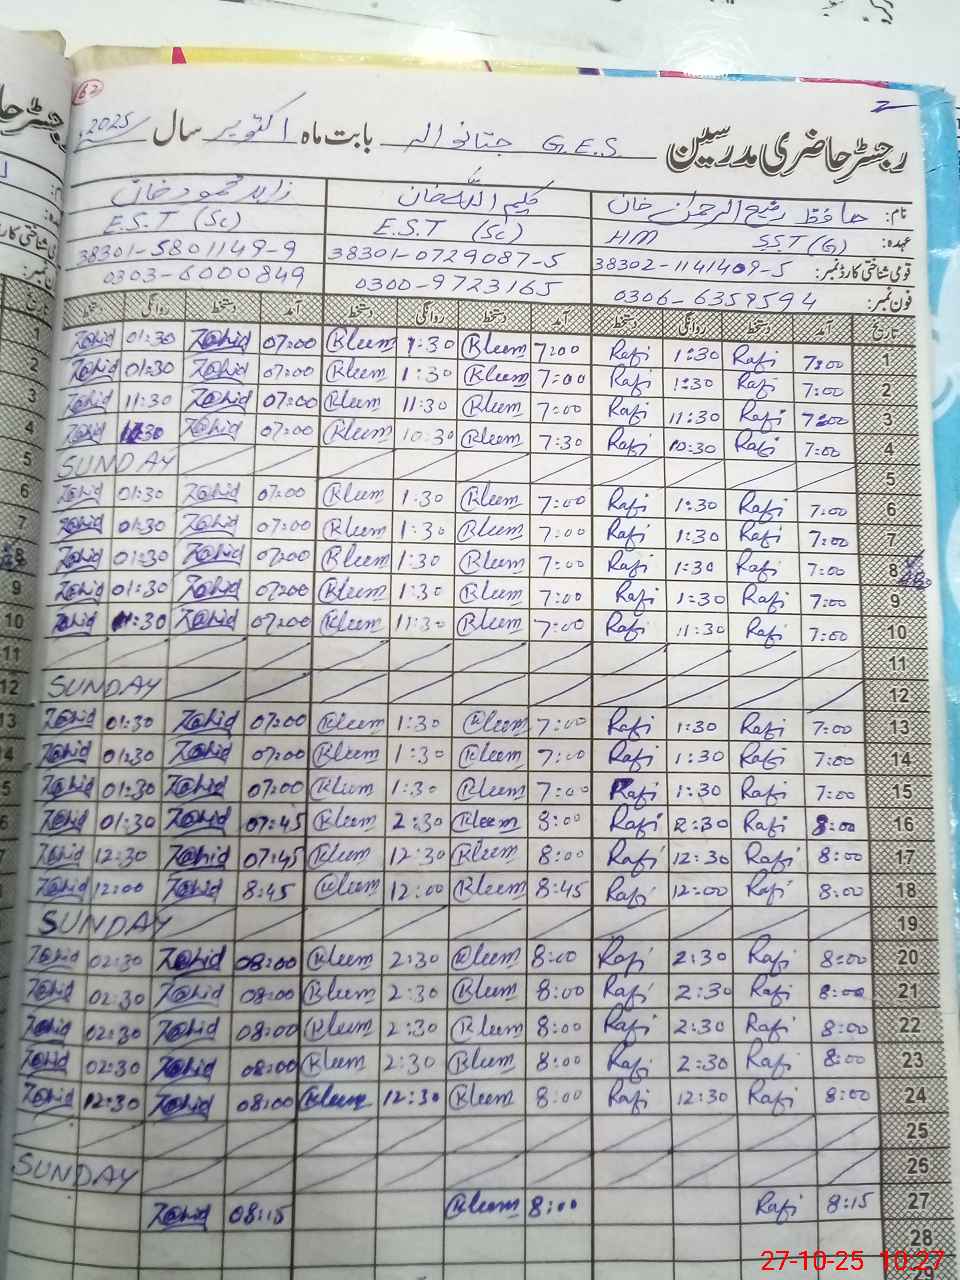 62
رجسٹر حاضری مدرسین G.E.S جتانوالہ بابت ماہ اکتوبر سال 2025
نام: حافظ رفیع الرحمٰن خان کلیم اللہ خان زاہد محمود خان
عہدہ: SST(G) HM E.S.T (Sc) E.S.T (Sc)
قومی شناختی کارڈ نمبر: 38302-1141409-5 38301-0729087-5 38301-5801149-9
فون نمبر: 0306-6359594 0300-9723165 0303-6000849
تاریخ آمد دستخط روانگی دستخط آمد دستخط روانگی دستخط آمد دستخط روانگی دستخط
1 7:00 Rafi 1:30 Rafi 7:00 Kleem 1:30 Kleem 07:00 Zahid 01:30 Zahid
2 7:00 Rafi 1:30 Rafi 7:00 Kleem 1:30 Kleem 07:00 Zahid 01:30 Zahid
3 7:00 Rafi 11:30 Rafi 7:00 Kleem 11:30 Kleem 07:00 Zahid 11:30 Zahid
4 7:00 Rafi 10:30 Rafi 7:30 Kleem 10:30 Kleem 07:00 Zahid Zahid
5 SUNDAY
6 7:00 Rafi 1:30 Rafi 7:00 Kleem 1:30 Kleem 07:00 Zahid 01:30 Zahid
7 7:00 Rafi 1:30 Rafi 7:00 Kleem 1:30 Kleem 07:00 Zahid 01:30 Zahid
8 7:00 Rafi 1:30 Rafi 7:00 Kleem 1:30 Kleem 07:00 Zahid 01:30 Zahid
9 7:00 Rafi 1:30 Rafi 7:00 Kleem 1:30 Kleem 07:00 Zahid 01:30 Zahid
10 7:00 Rafi 11:30 Rafi 7:00 Kleem 11:30 Kleem 07:00 Zahid 11:30 Zahid
11
12 SUNDAY
13 7:00 Rafi 1:30 Rafi 7:00 Kleem 1:30 Kleem 07:00 Zahid 01:30 Zahid
14 7:00 Rafi 1:30 Rafi 7:00 Kleem 1:30 Kleem 07:00 Zahid 01:30 Zahid
15 7:00 Rafi 1:30 Rafi 7:00 Kleem 1:30 Kleem 07:00 Zahid 01:30 Zahid
16 8:00 Rafi 2:30 Rafi 8:00 Kleem 2:30 Kleem 07:45 Zahid 01:30 Zahid
17 8:00 Rafi 12:30 Rafi 8:00 Kleem 12:30 Kleem 07:45 Zahid 12:30 Zahid
18 8:00 Rafi 12:00 Rafi 8:45 Kleem 12:00 Kleem 8:45 Zahid 12:00 Zahid
19 SUNDAY
20 8:00 Rafi 2:30 Rafi 8:00 Kleem 2:30 Kleem 08:00 Zahid 02:30 Zahid
21 8:00 Rafi 2:30 Rafi 8:00 Kleem 2:30 Kleem 08:00 Zahid 02:30 Zahid
22 8:00 Rafi 2:30 Rafi 8:00 Kleem 2:30 Kleem 08:00 Zahid 02:30 Zahid
23 8:00 Rafi 2:30 Rafi 8:00 Kleem 2:30 Kleem 08:00 Zahid 02:30 Zahid
24 8:00 Rafi 12:30 Rafi 8:00 Kleem 12:30 Kleem 08:00 Zahid 12:30 Zahid
25
26 SUNDAY
27 8:15 Rafi 8:00 Kleem 08:15 Zahid
28
29
27-10-25 10:27